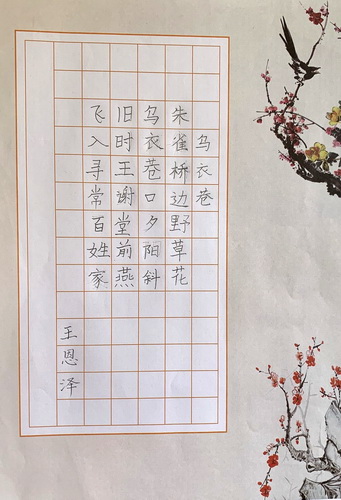 乌衣巷
朱雀桥边野草花
乌衣巷口夕阳斜
旧时王谢堂前燕
飞入寻常百姓家
王恩泽